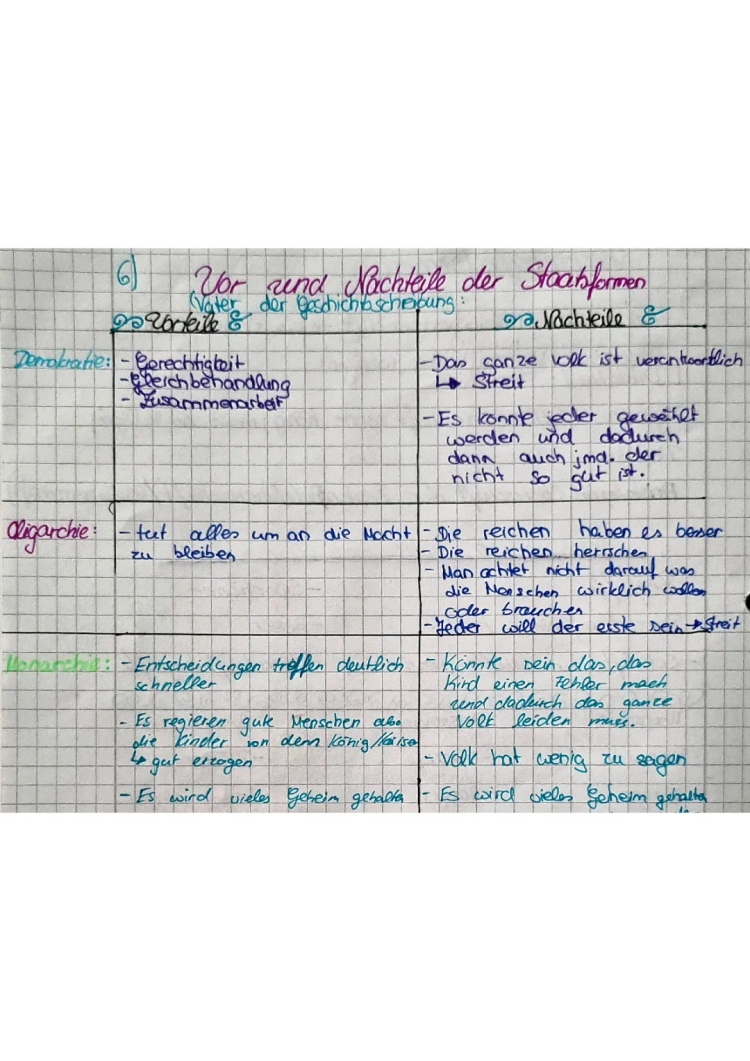 6) Vor und Nachteile der Staatsformen
(Vater der Geschichtsscheibung:
Vorteile
Nachteile
Demokratie:
- Gerechtigkeit
- Gleichbehandlung
- Zusammenarbeit
- Das ganze volk ist verantwortlich
↳ Streit
- Es könnte jeder gewählt
werden und dadurch
dann auch jmd. der
nicht so gut ist.
Oligarchie:
- tut alles um an die Macht
zu bleiben
- Die reichen haben es besser
- Die reichen herrschen
- Man achtet nicht darauf was
die Menschen wirklich wollen
oder brauchen
- Jeder will der erste sein → Streit
Monarchie:
- Entscheidungen treffen deutlich
schneller
- Es regieren gute Menschen also
die Kinder von dem König/Kaiser
↳ gut erzogen
- Es wird vieles Geheim gehalten
- Könnte sein das, das
Kind einen Fehler mach
und dadurch das ganze
Volk leiden muss.
- Volk hat wenig zu sagen
- Es wird vieles Geheim gehalten